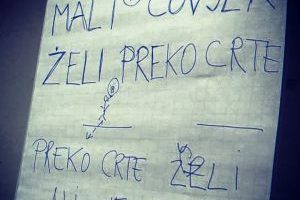 MALI ČOVJEK
ŽELI PREKO CRTE
PREKO CRTE ŽELI